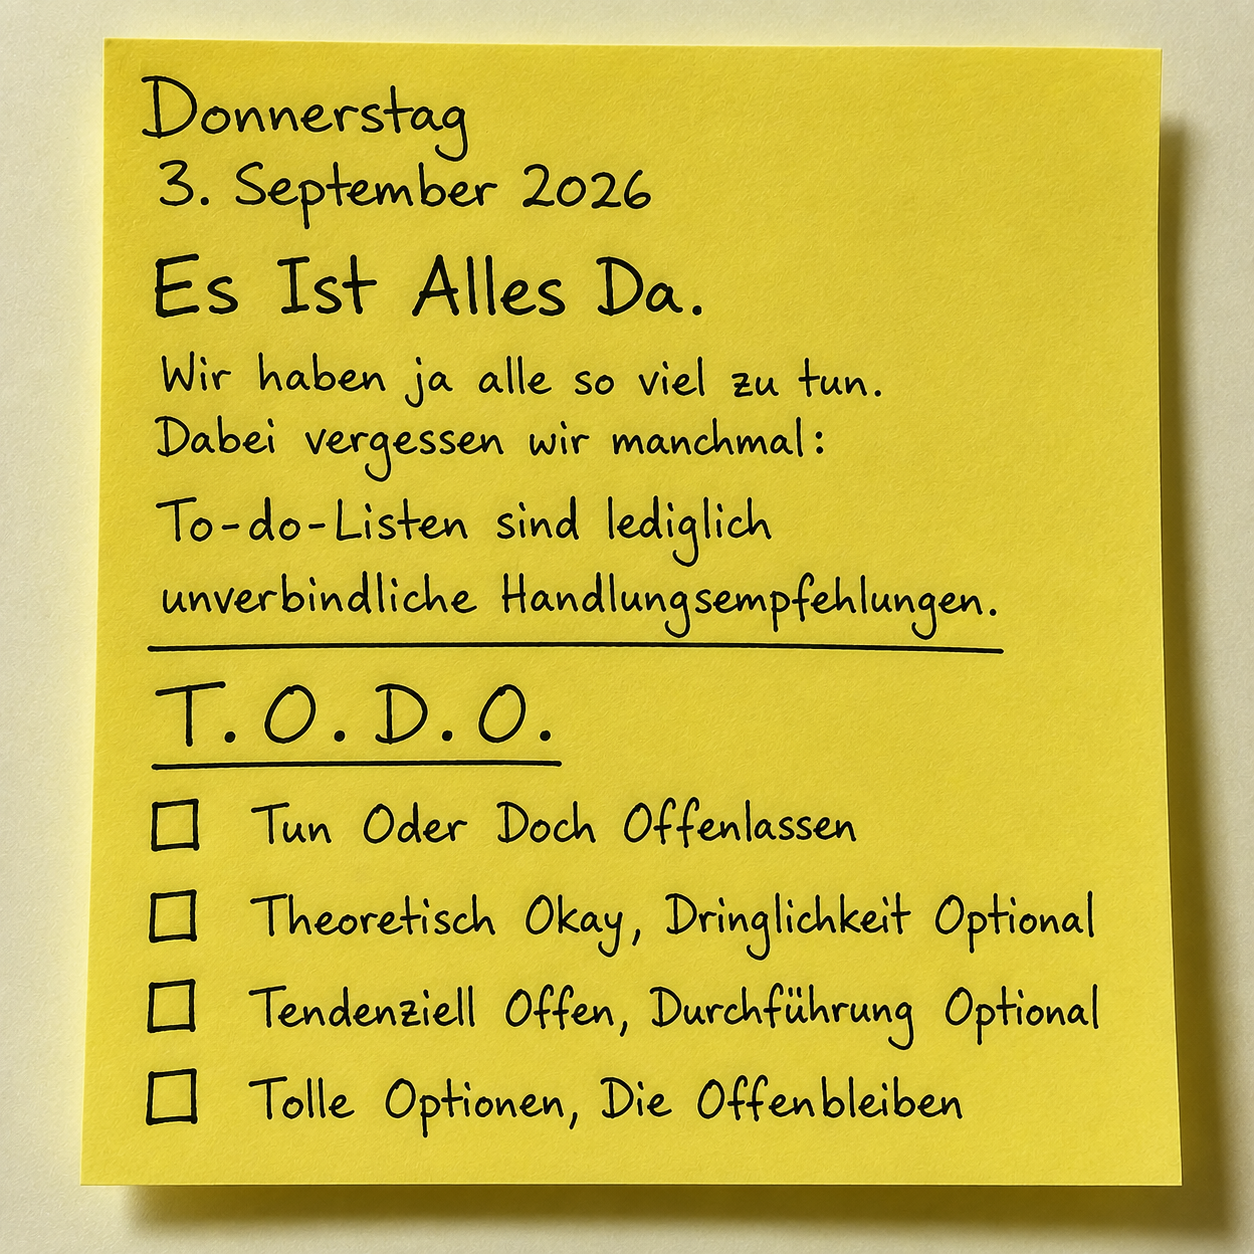 Donnerstag
3. September 2026
Es Ist Alles Da.
Wir haben ja alle so viel zu tun.
Dabei vergessen wir manchmal:
To-do-Listen sind lediglich
unverbindliche Handlungsempfehlungen.
T.O.D.O.
Tun Oder Doch Offenlassen
Theoretisch Okay, Dringlichkeit Optional
Tendenziell Offen, Durchführung Optional
Tolle Optionen, Die Offenbleiben